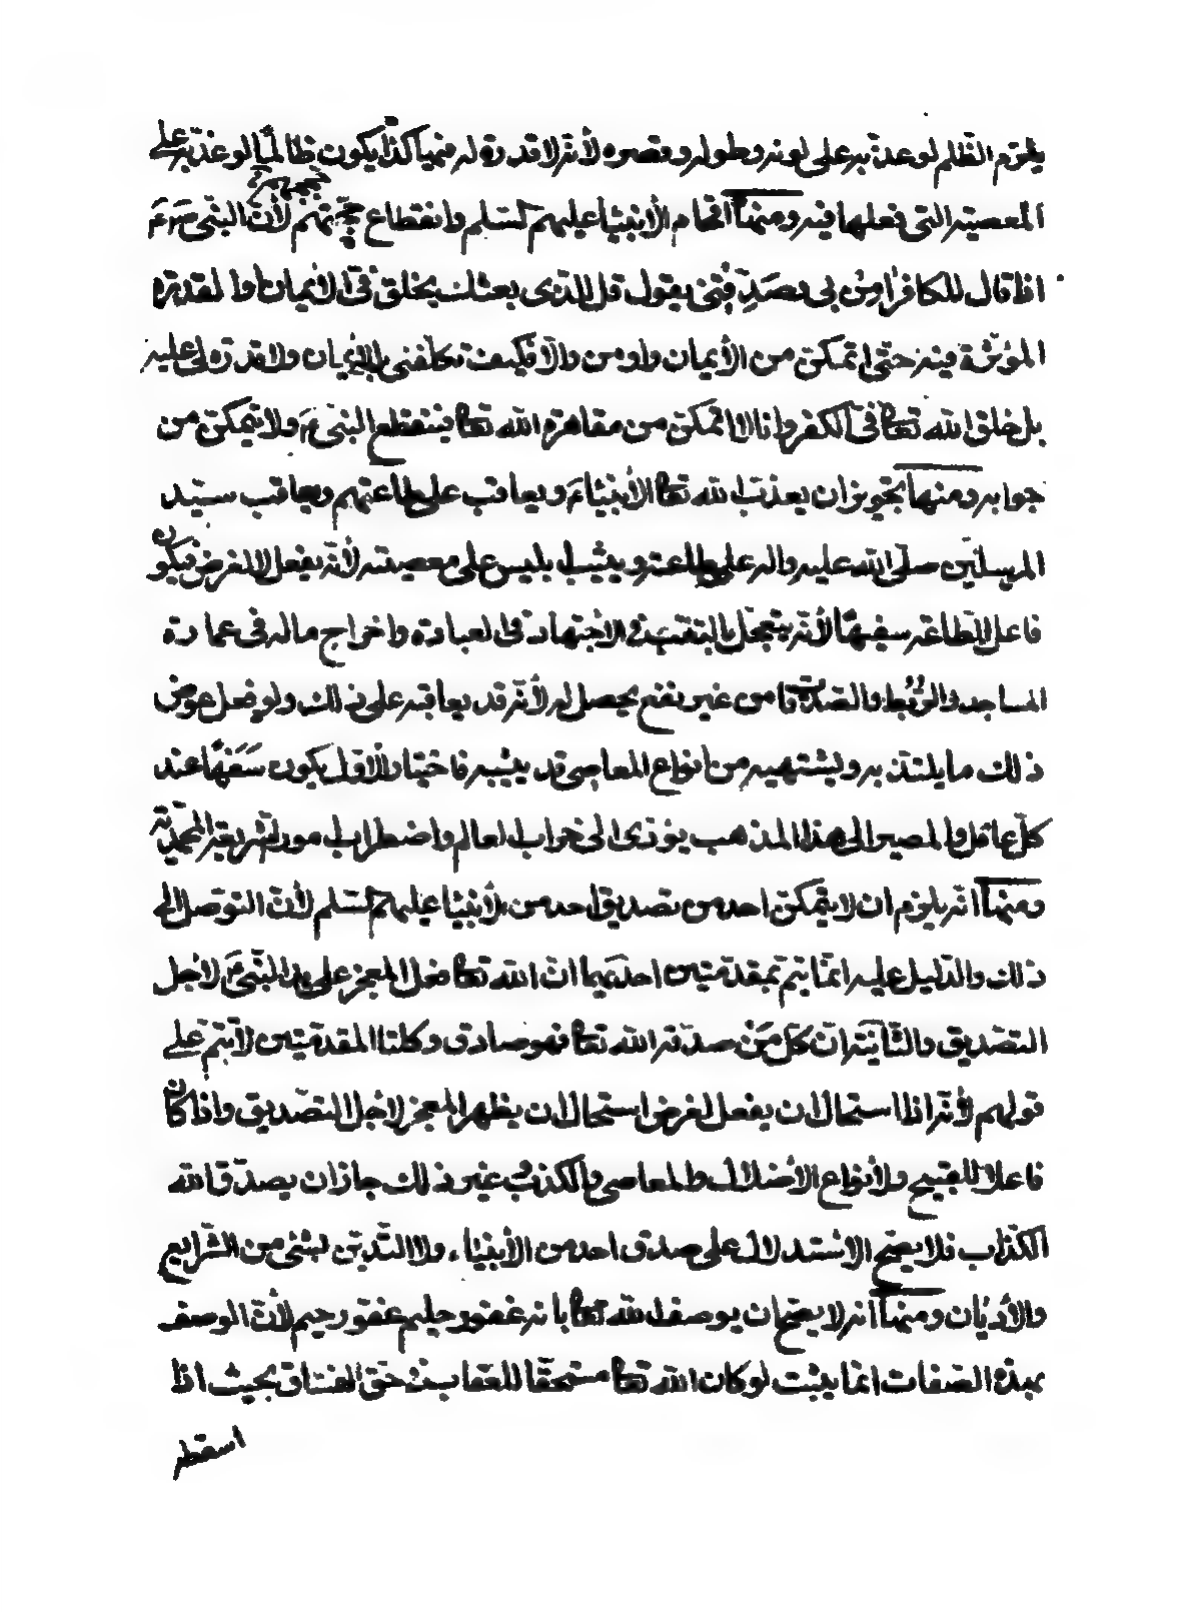 يلزم الظلم لو عذّبه على لونه وطوله وقصره لأنّه لا قدرة له فيها كذا يكون ظالمًا لو عذّبه على
المعصية التى فعلها فيه ومنها افحام الأنبياء عليهم السّلم وانقطاع حجّتهم لأنّ النبّى مَ
اذا قال للكافر اٰمِن بى وصَدِّقنى يقول قل للذى بعثك يخلق فىّ الأيمان او القدرة
المؤثّرة فيه حتّى اتمكّن من الأيمان واومن والّا فكيف تكلّفنى بالإيمان ولا قدرة لى عليه
بل خلق الله تعا فىّ الكفر وانا لا اتمكّن من مقاهرة الله تعا فينقطع النبى مَ ولا يتمكّن من
جوابه ومنها تجويز ان يعذب الله تعا الأنبياءَ ويعاقب على طاعتهم ويعاقب سيّد
المرسلين صلّى الله عليه واله على طاعته ويثيب ابليس على معصيته لأنّه يفعل لا لغرض فيكون
فاعل الطّاعة سفيهًا لأنّه يتعجّل بالتعب فى الأجتهاد فى العبادة واخراج ماله فى عمارة
المساجد والرُّبُط والصّدقات من غير نفع يحصل له لأنّه قد يعاقبه على ذلك ولو فعل عوض
ذلك ما يلتذ به ويشتهيه من انواع المعاصى قد يثيبه فاختيار الأول يكون سَفَهًا عند
كلّ عاقل والمصير الى هذا المذهب يؤدّى الى خراب العالم واضطراب امور الشّريعة المحمّديّة
ومنها انّه يلزم ان لا يتمكّن احد من تصديق احد من الأنبياء عليهم السّلم لأنّ التوصّل الى
ذلك والدّليل عليه انّما يتم بمقدّمتين احدهما انّ الله تعا فعل المعجز على يد النّبّى مَ لأجل
التصديق والثّانية انّ كلّ مَنْ صدّقه الله تعا فهو صادق وكلتا المقدّمتين لا تتم على
قولهم لأنّه اذا استحال ان يفعل لغرض استحال ان يظهر المعجز لأجل التصديق واذا كان
فاعلا للقبيح ولأنواع الأضلال والمعاصى والكذب وغير ذلك جاز ان يصدّق الله
الكذّاب فلا يصحّ الاستدلال على صدق احد من الأنبياء ولا التّدين بشئ من الشّرايع
والأديان ومنها انه لا يصحّ ان يوصف الله تعا بانه غفور حليم عفوّ رحيم لأنّ الوصف
بهذه الصّفات انّما يثبت لو كان الله تعا مستحقّا للعقاب فى حقّ الفسّاق بحيث اذا
اسقطه